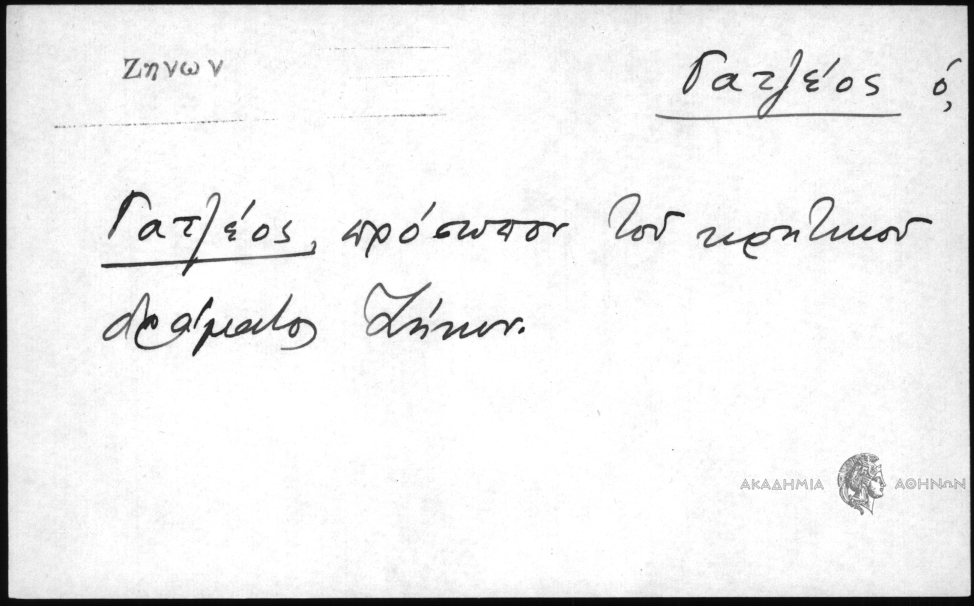 Ζηνων
Γατζέος ὁ,
Γατζέος, πρόσωπον τοῦ κρητικοῦ
δράματος Ζήνων.
ΑΚΑΔΗΜΙΑ ΑΘΗΝΩΝ